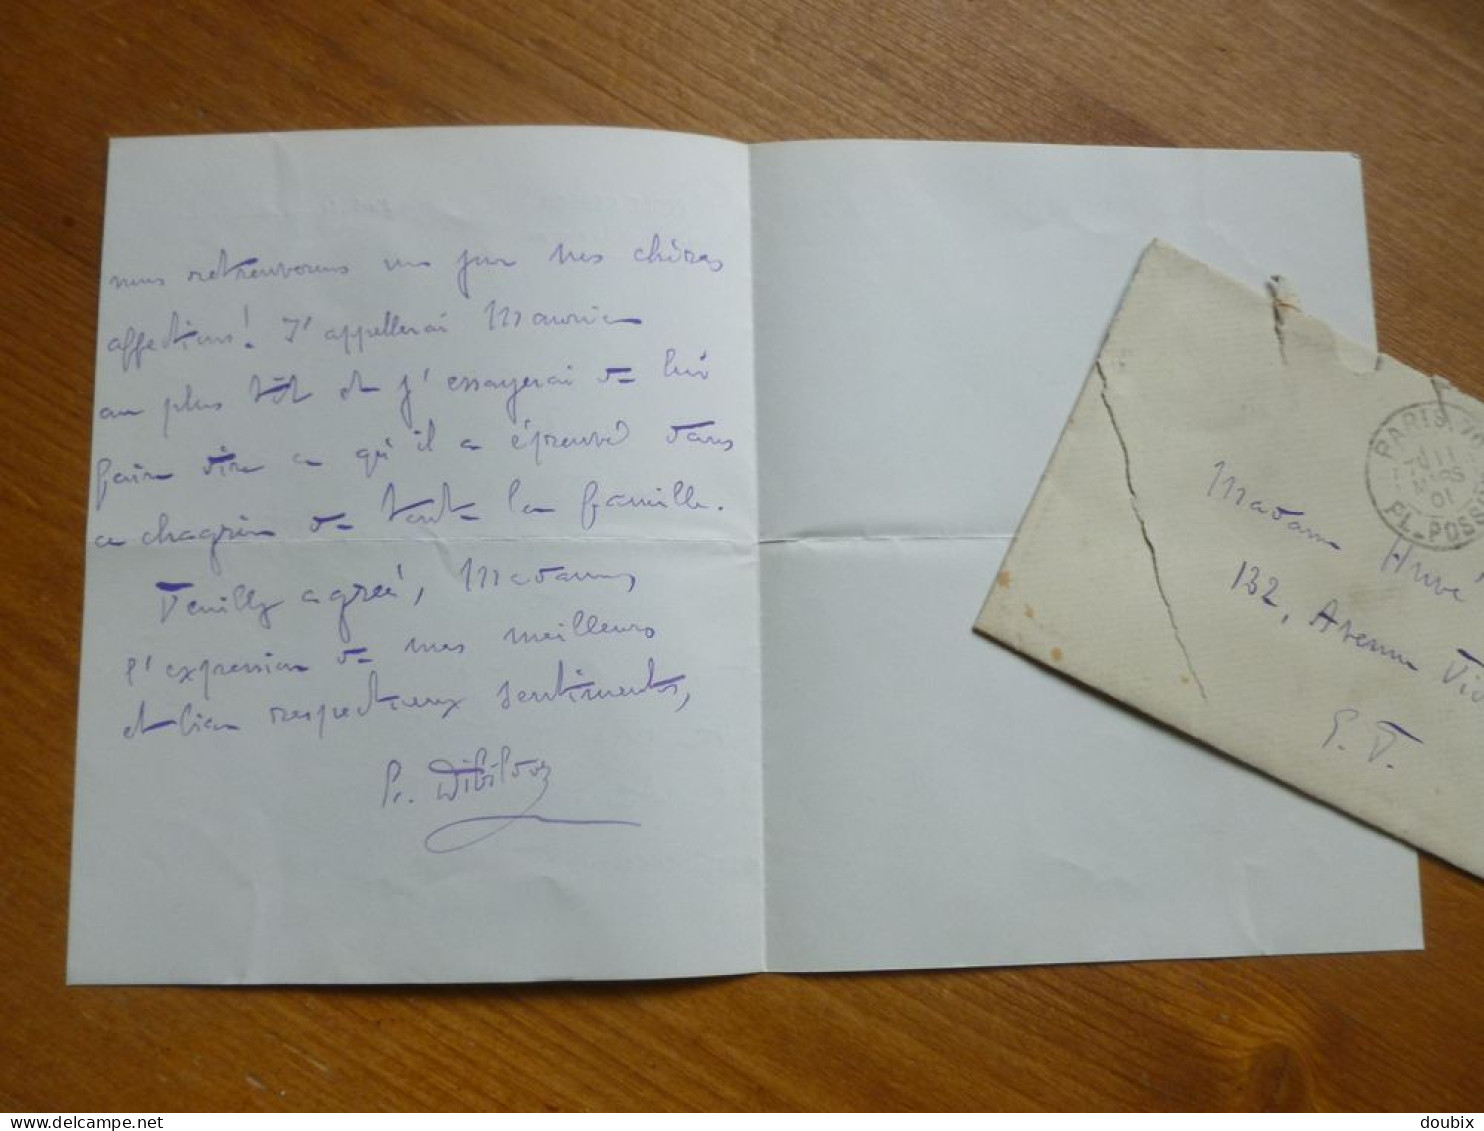 nous retrouverons un jour nos chères
affections! J'appellerai Maurice
au plus tôt et j'essayerai de lui
faire dire ce qu'il a éprouvé dans
ce chagrin de toute la famille.
Veuillez agréer, Madame,
l'expression de mes meilleurs
et bien respectueux sentiments,
PARIS
11
MARS
01
PL.
Madame Huvé
132, Avenue
E. V.
delcampe.net
doubix